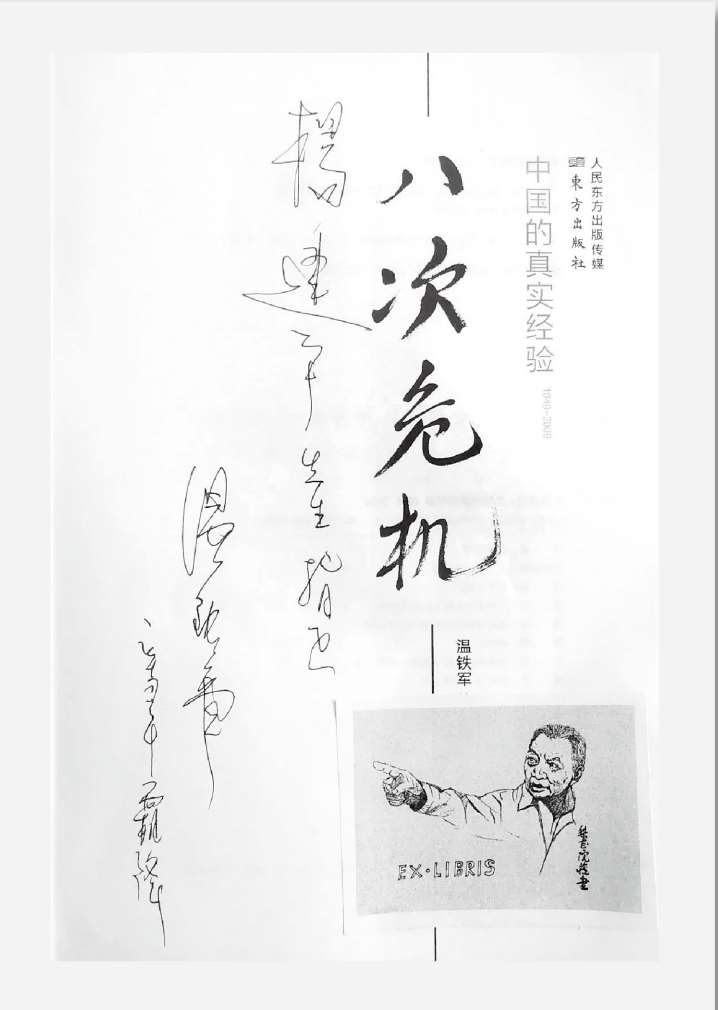 人民东方出版传媒
東方出版社
中国的真实经验
1949-2009
八次危机
温铁军
楊建平先生指正
温铁军
霜降
EX·LIBRIS
藏書